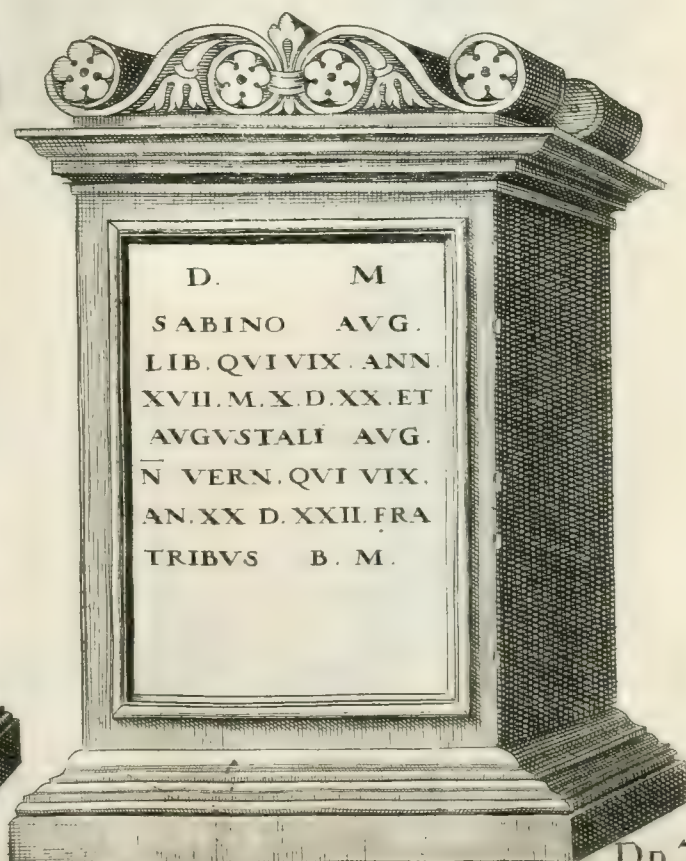 D. M
SABINO AVG.
LIB. QVI VIX. ANN
XVII. M. X. D. XX. ET
AVGVSTALI AVG.
N̅ VERN. QVI VIX.
AN. XX D. XXII. FRA
TRIBVS B. M.